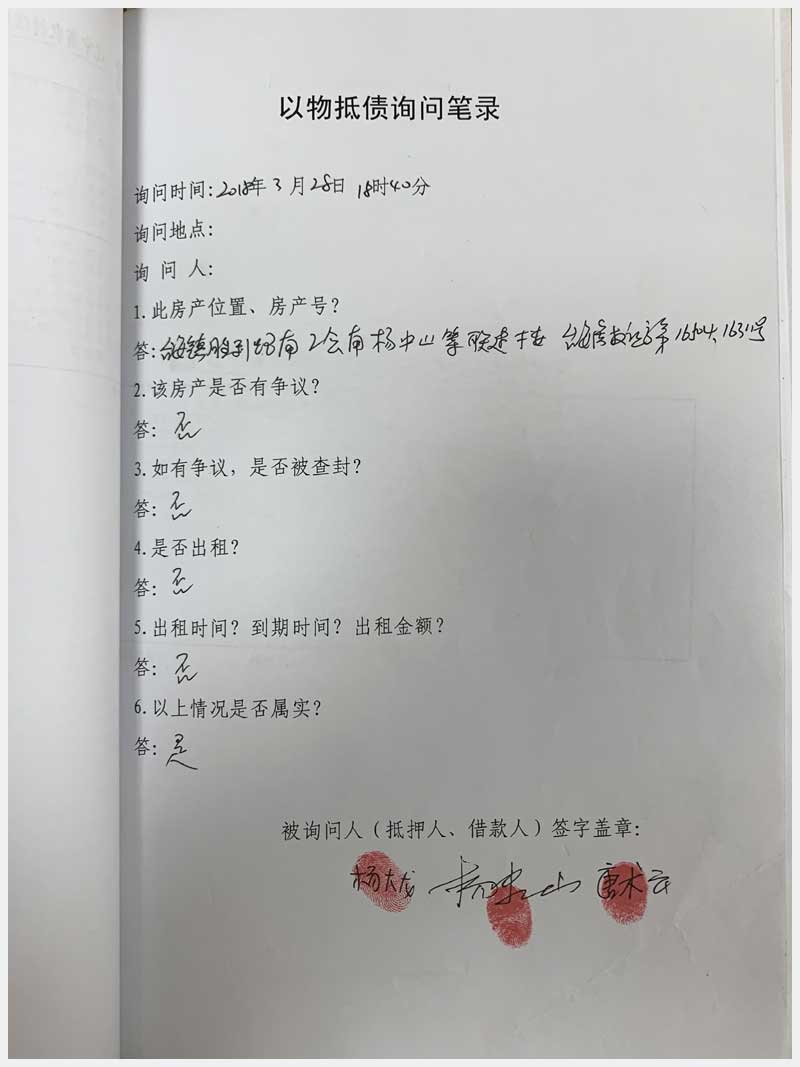 以物抵债询问笔录
询问时间：2018年3月28日 18时40分
询问地点：
询 问 人：
1.此房产位置、房产号？
答：台安镇胜利路南工会南杨中山等联建楼 第16504、16511号
2.该房产是否有争议？
答：否
3.如有争议，是否被查封？
答：否
4.是否出租？
答：否
5.出租时间？到期时间？出租金额？
答：否
6.以上情况是否属实？
答：是
被询问人（抵押人、借款人）签字盖章：
杨大龙 杨中山 唐术云